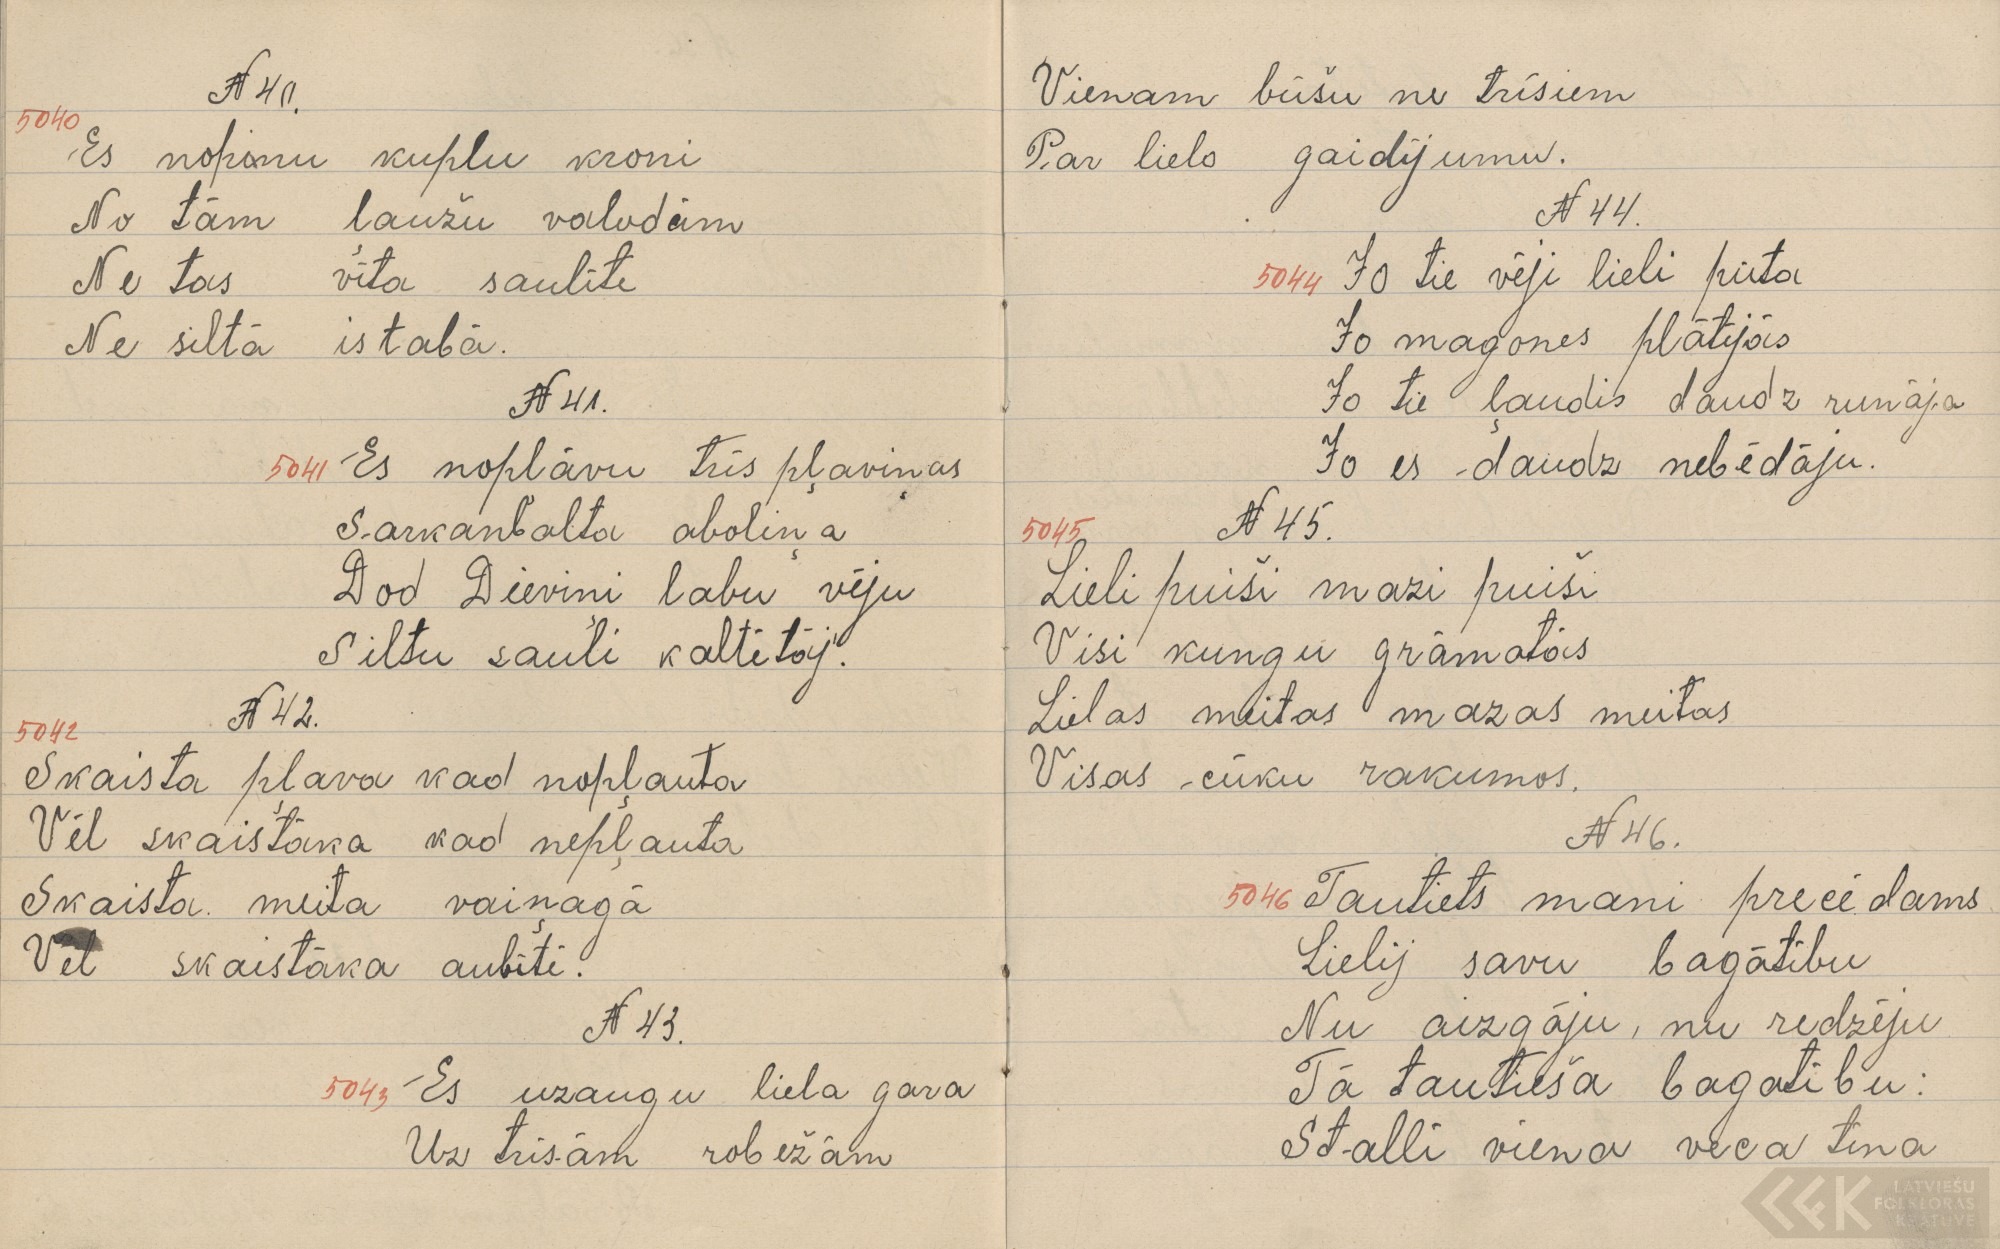 № 40.
5040
Es nopinu kuplu kroni
No tām ļaužu valodām
Ne tas vīta saulīte
Ne siltā istabā.
№ 41.
5041 Es noplāvu trīs pļaviņas
Sarkanbalta aboliņa
Dod Dieviņi labu vēju
Siltu sauli kaltētāj'.
№ 42.
5042
Skaista pļava kad nopļauta
Vēl skaistāka kad nepļauta
Skaista meita vaiņagā
Vēl skaistāka aubītē.
№ 43.
5043 Es uzaugu liela gara
Uz trisām robežām
Vienam būšu ne trīsiem
Par lielo gaidījumu.
№ 44.
5044 Jo tie vēji lieli pūta
Jo magones plātijās
Jo tie ļaudis daudz runāja
Jo es daudz nebēdāju.
5045 № 45.
Lieli puiši mazi puiši
Visi kungu grāmatās
Lielas meitas mazas meitas
Visas cūku rakumos.
№ 46.
5046 Tautiets mani precēdams
Lielij savu bagātību
Nu aizgāju, nu redzēju
Tā tautieša bagatību:
Stalli viena veca tina
LATVIEŠU
FOLKLORAS
KRĀTUVE